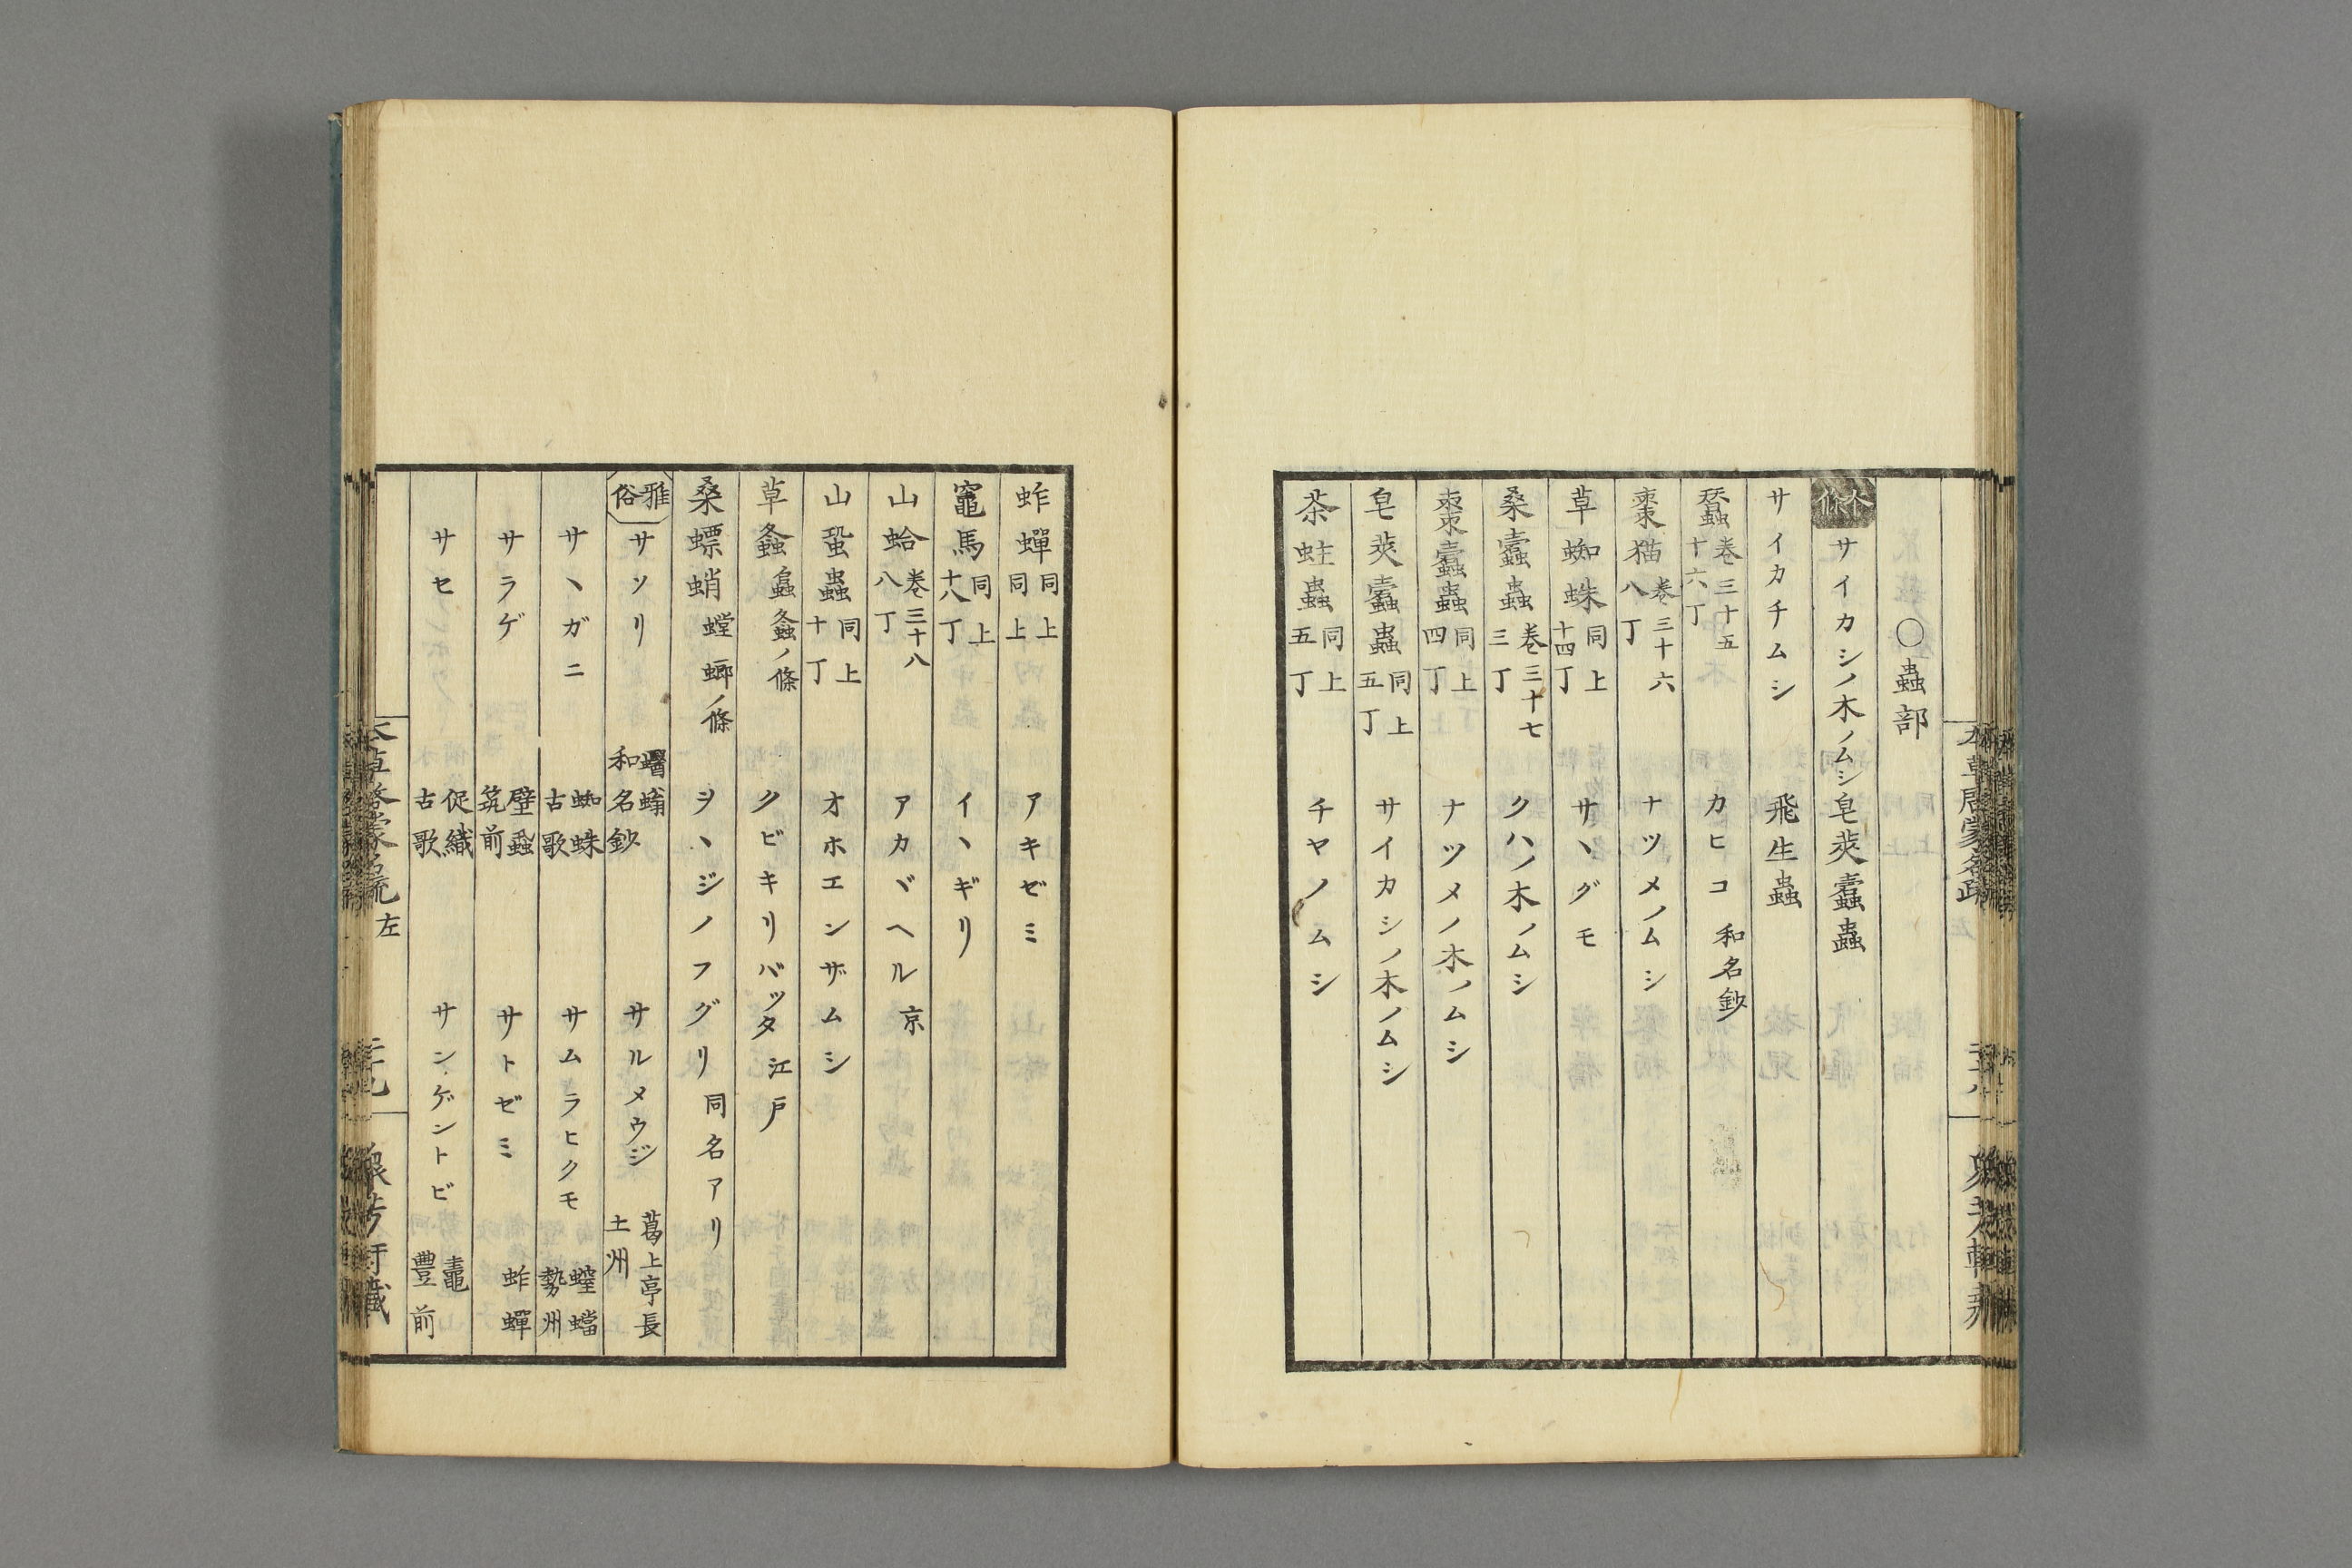 〇蟲部
サイカシノ木ノムシ 皂莢蠹蟲
サイカチムシ 飛生蟲
蠶 卷三十五 十六丁 カヒコ 和名鈔
棗猫 卷三十六 八丁 ナツメノムシ
草蜘蛛 同上 十四丁 サヽグモ
桑蠹蟲 卷三十七 三丁 クハノ木ノムシ
棗蠹蟲 同上 四丁 ナツメノ木ノムシ
皂莢蠹蟲 同上 五丁 サイカシノ木ノムシ
茶蛀蟲 同上 五丁 チヤノムシ
蚱蟬 同上 同上 アキゼミ
竈馬 同上 十八丁 イヽギリ
山蛤 卷三十八 八丁 アカヾヘル 京
山蛩蟲 同上 十丁 オホエンザムシ
草螽 螽ノ條 クビキリバッタ 江戸
桑螵蛸 螳螂ノ條 ヲヽジノフグリ 同名アリ
雅俗 サソリ 蠮螉 和名鈔 サルメウジ 葛上亭長 土州
サヽガニ 蜘蛛 古歌 サムラヒクモ 螲蟷 勢州
サラゲ 壁蝨 筑前 サトゼミ 蚱蟬
サセ 促織 古歌 サンゲントビ 竈 豐前
左